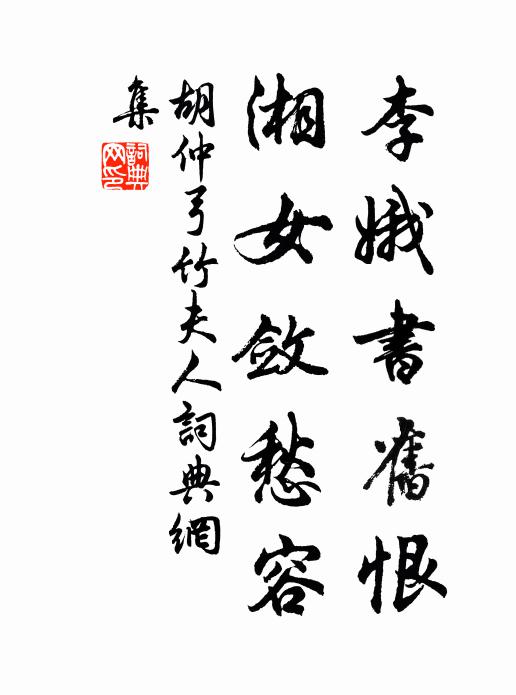 李娥書舊恨
湘女斂愁容
胡仲弓竹夫人詞典網
集
詞典
网印